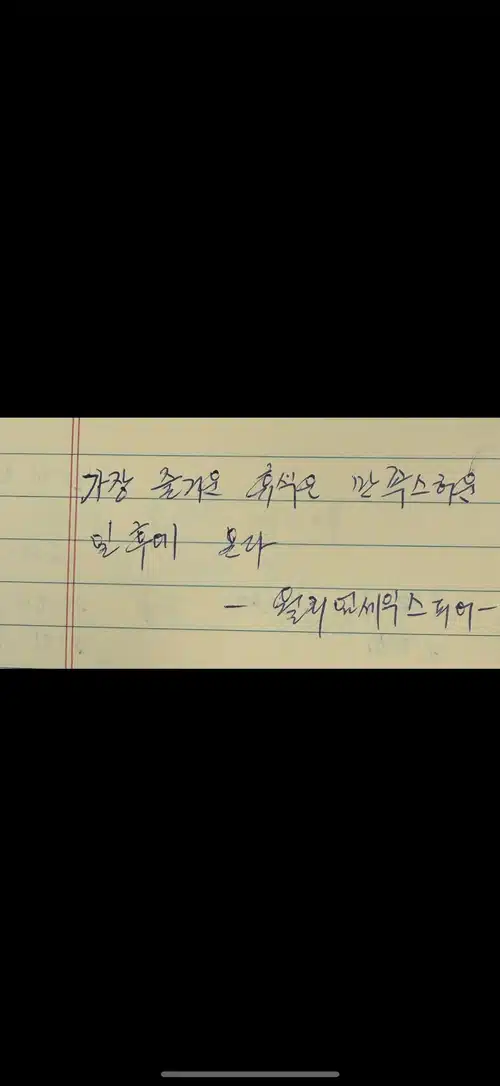 가장 즐거운 휴식은 만족스러운
일 후에 온다
- 윌리엄세익스피어-